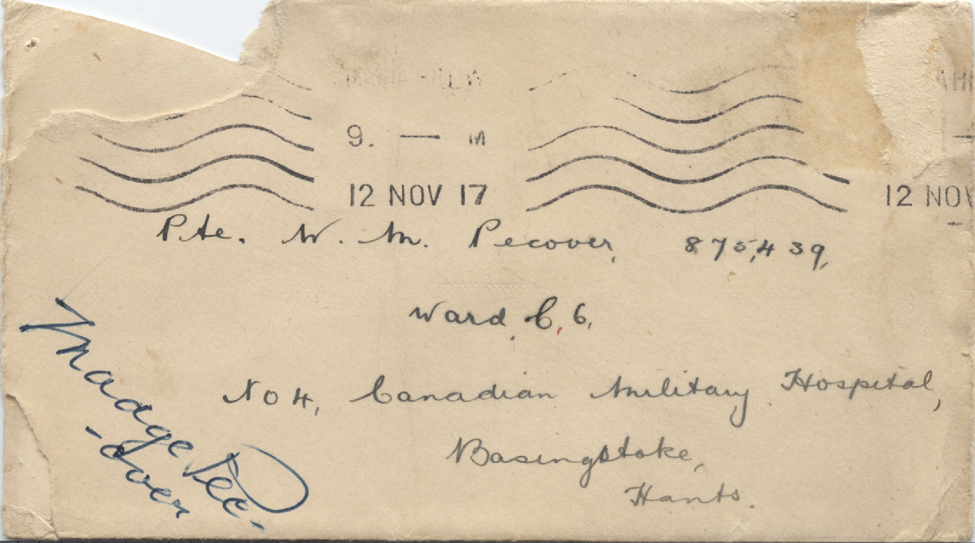 9. — M
12 NOV 17
12 NOV
Pte. W. M. Pecover, 875,439,
Ward, C, 6,
No 4, Canadian Military Hospital,
Basingstoke,
Hants.
Madge Pec-
-over